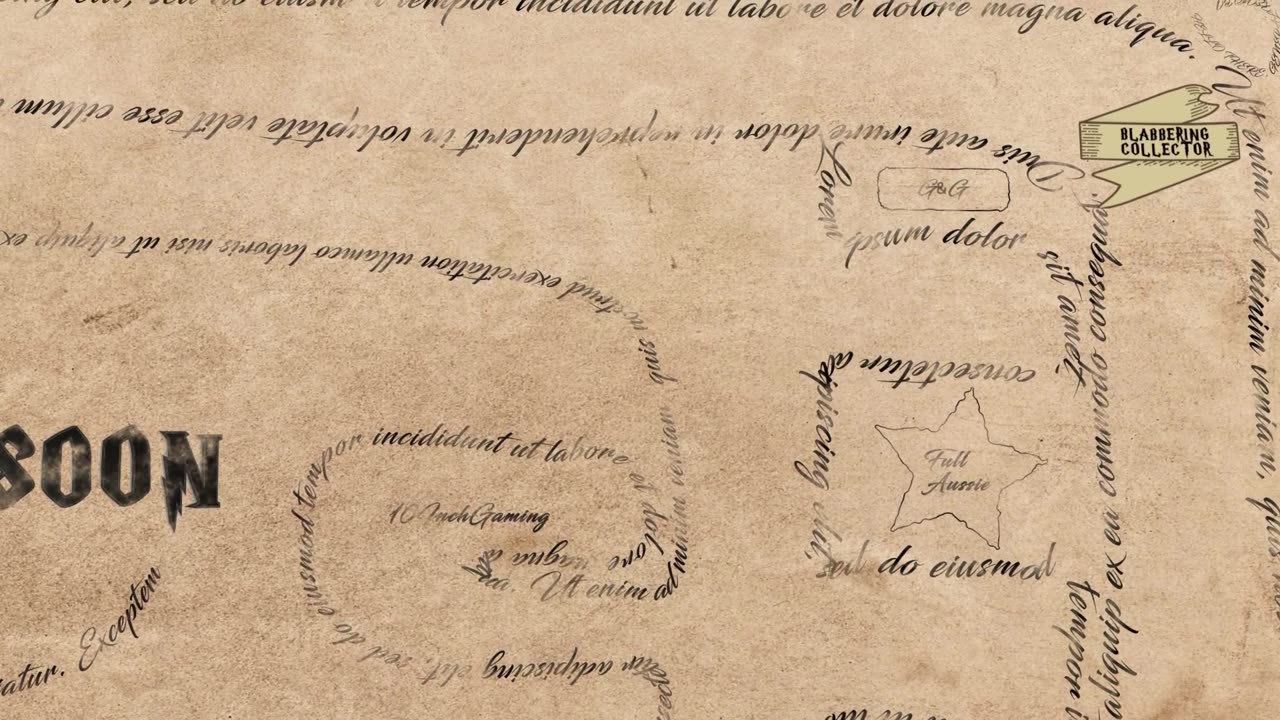 sed do eiusmod tempor incididunt ut labore et dolore magna aliqua.
Ut enim ad minim veniam, quis
BLABBERING
COLLECTOR
Duis aute irure dolor in reprehenderit in voluptate velit esse cillum
Lorem
G&G
ipsum dolor
sit amet,
consectetur a
dipiscing elit,
Full
Aussie
sed do eiusmod
tempor i
aliquip ex ea commodo consequat.
quis nostrud exercitation ullamco laboris nisi ut aliquip ex
SOON
10InchGaming
adipiscing elit, sed do eiusmod tempor incididunt ut labore et dolore magna a
Ut enim ad minim veniam
Excepteu